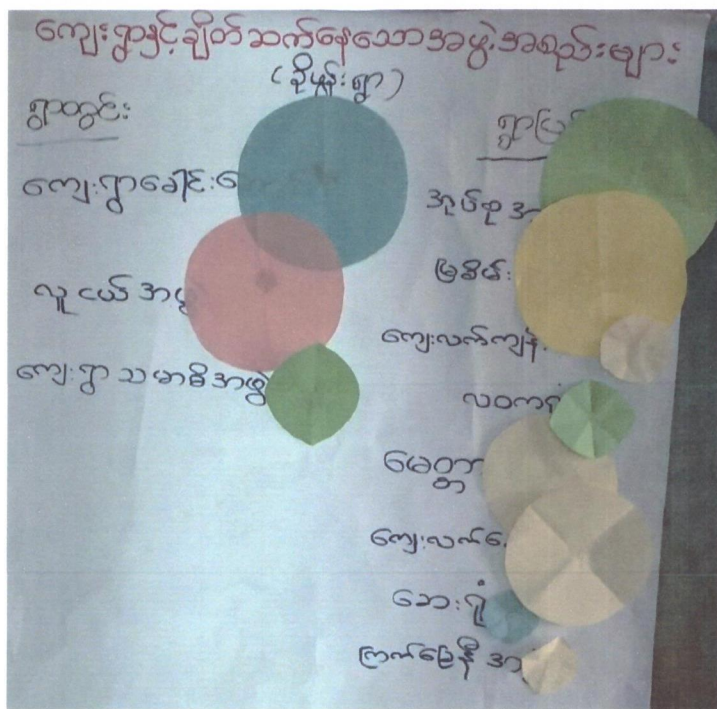 ကျေးရွာနှင့်ချိတ်ဆက်နေသောအဖွဲ့အစည်းများ
(ခိုမှန်းရွာ)
ရွာတွင်း
ကျေးရွာခေါင်း
လူငယ်
ကျေးရွာသမာဓိအဖွဲ့
ရွာပြ
အုပ်စု
မြစိမ်း
ကျေးလက်ကျန်း
လဝက
မေတ္တာ
ကျေးလက်
ဆေးရုံ
ကြက်ခြေနီ